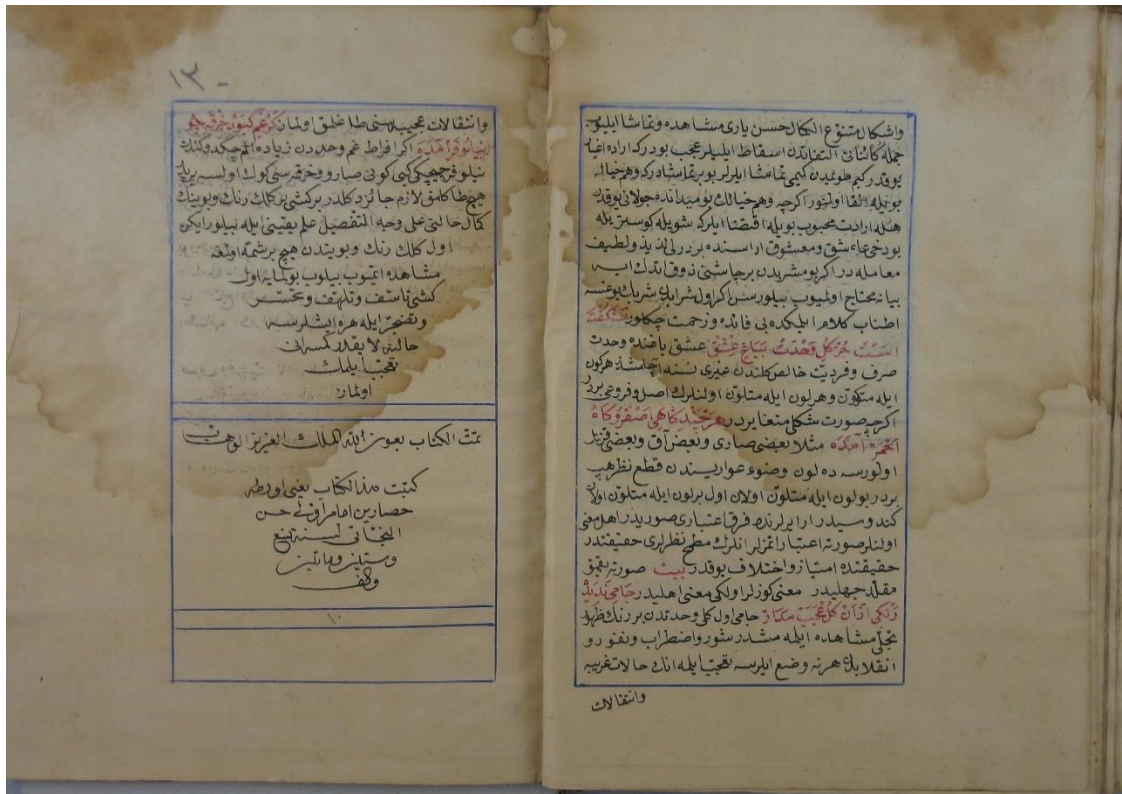 واشكال متنوع الكمال حسن يارى مشاهده وتماشا ايليوب
جمله كائناتى التفاتدن اسقاط ايليلر عجب بودركه اراده اغيار
يوقدر كيم طوتمدن كيمى تماشا ايلرلر بو بر تماشادركه وهم خيال
بويله القا اولنور اكرچه وهم خيالك بو ميدانده جولانى يوقدر
هله ارادت محبوب بويله اقتضا ايلركه شويله كوستريله
بودخى عاشق ومعشوق اراسنده بر درلى لذيذ ولطيف
معامله در اكر بو مشربدن بر چاشنى ذوقاتدك ايسه
بيانه محتاج اولميوب بيلورسن اكر اول شرابك شريك يوغسه
اطناب كلام ايلمكده بى فائده وزحمت چكلور نشكفته
است جز كل وحدت بباغ عشق عشق باغنده وحدت
صرف وفرديت خالص كلندن غيرى نسنه اچلمشدر هركون
ايله متكون وهر لون ايله متلون اولنلرك اصل وفروعى بردر
اكرچه صورت شكلى متغايردر هرچند كاهى اصفر وكاه
احمر آمده مثلا بعضى صارى وبعض آق وبعضى قزيل
اولورسه ده لون وضوء عواريسندن قطع نظر هپ
بردر بو لون ايله متلون اولان اول بر لون ايله متلون اولان
كندوسيدر ارايرلرنده فرق اعتبارى صوريدر اهل معنى
اولنلر صورته اعتبار اتمزلر انلرك مطمح نظرلرى حقيقتدر
حقيقتده امتياز واختلاف يوقدر بيت صورته بقمق
مقلد جهليدر معنى كوزلر اولكى معنى اهليدر جامى نديد
رنكى ازان كل عجب مدار جامى اول كلى وحدتدن بر رنك ظهور
تجلى مشاهده ايلمه مشدر شور واضطراب ونفور و
انقلابك هر نه وضع ايلرسه تعجب ايلمه انك حالات غريبه
وانتقالات
١٣
وانتقالات عجيبه سنى طاغلمق اولمان كز غم كبود خرقه چو
نيلوفر آمده اكر افراط غم وحددن زياده الم چكدوكندن
نيلوفر چيچكى كبى كونى صارو وخرقه سنى كوك اولسه يريدر
هيچ طاكلامق لازم جائز دكلدر بر كشى بر كلك رنك وبوينك
كمال حالنى على وجه التفصيل علم يقينى ايله بيلورايكن
اول كلك رنك وبويندن هيچ بر شمه اولغه
مشاهده اتميوب بيلوب بولمايه اول
كشى تاسف وتلهف وتحسر
وتضجر ايله هر نه ايشلرسه
حالنه لايقدر كمسه انى
تعجب ايلمك
اولماز
تمت الكتاب بعون الله الملك العزيز الوهاب
كتبت هذا الكتاب يعنى اورطه
حصارين امام
حسن
لسنة تسع
وستين ومائتين
والف
١٠